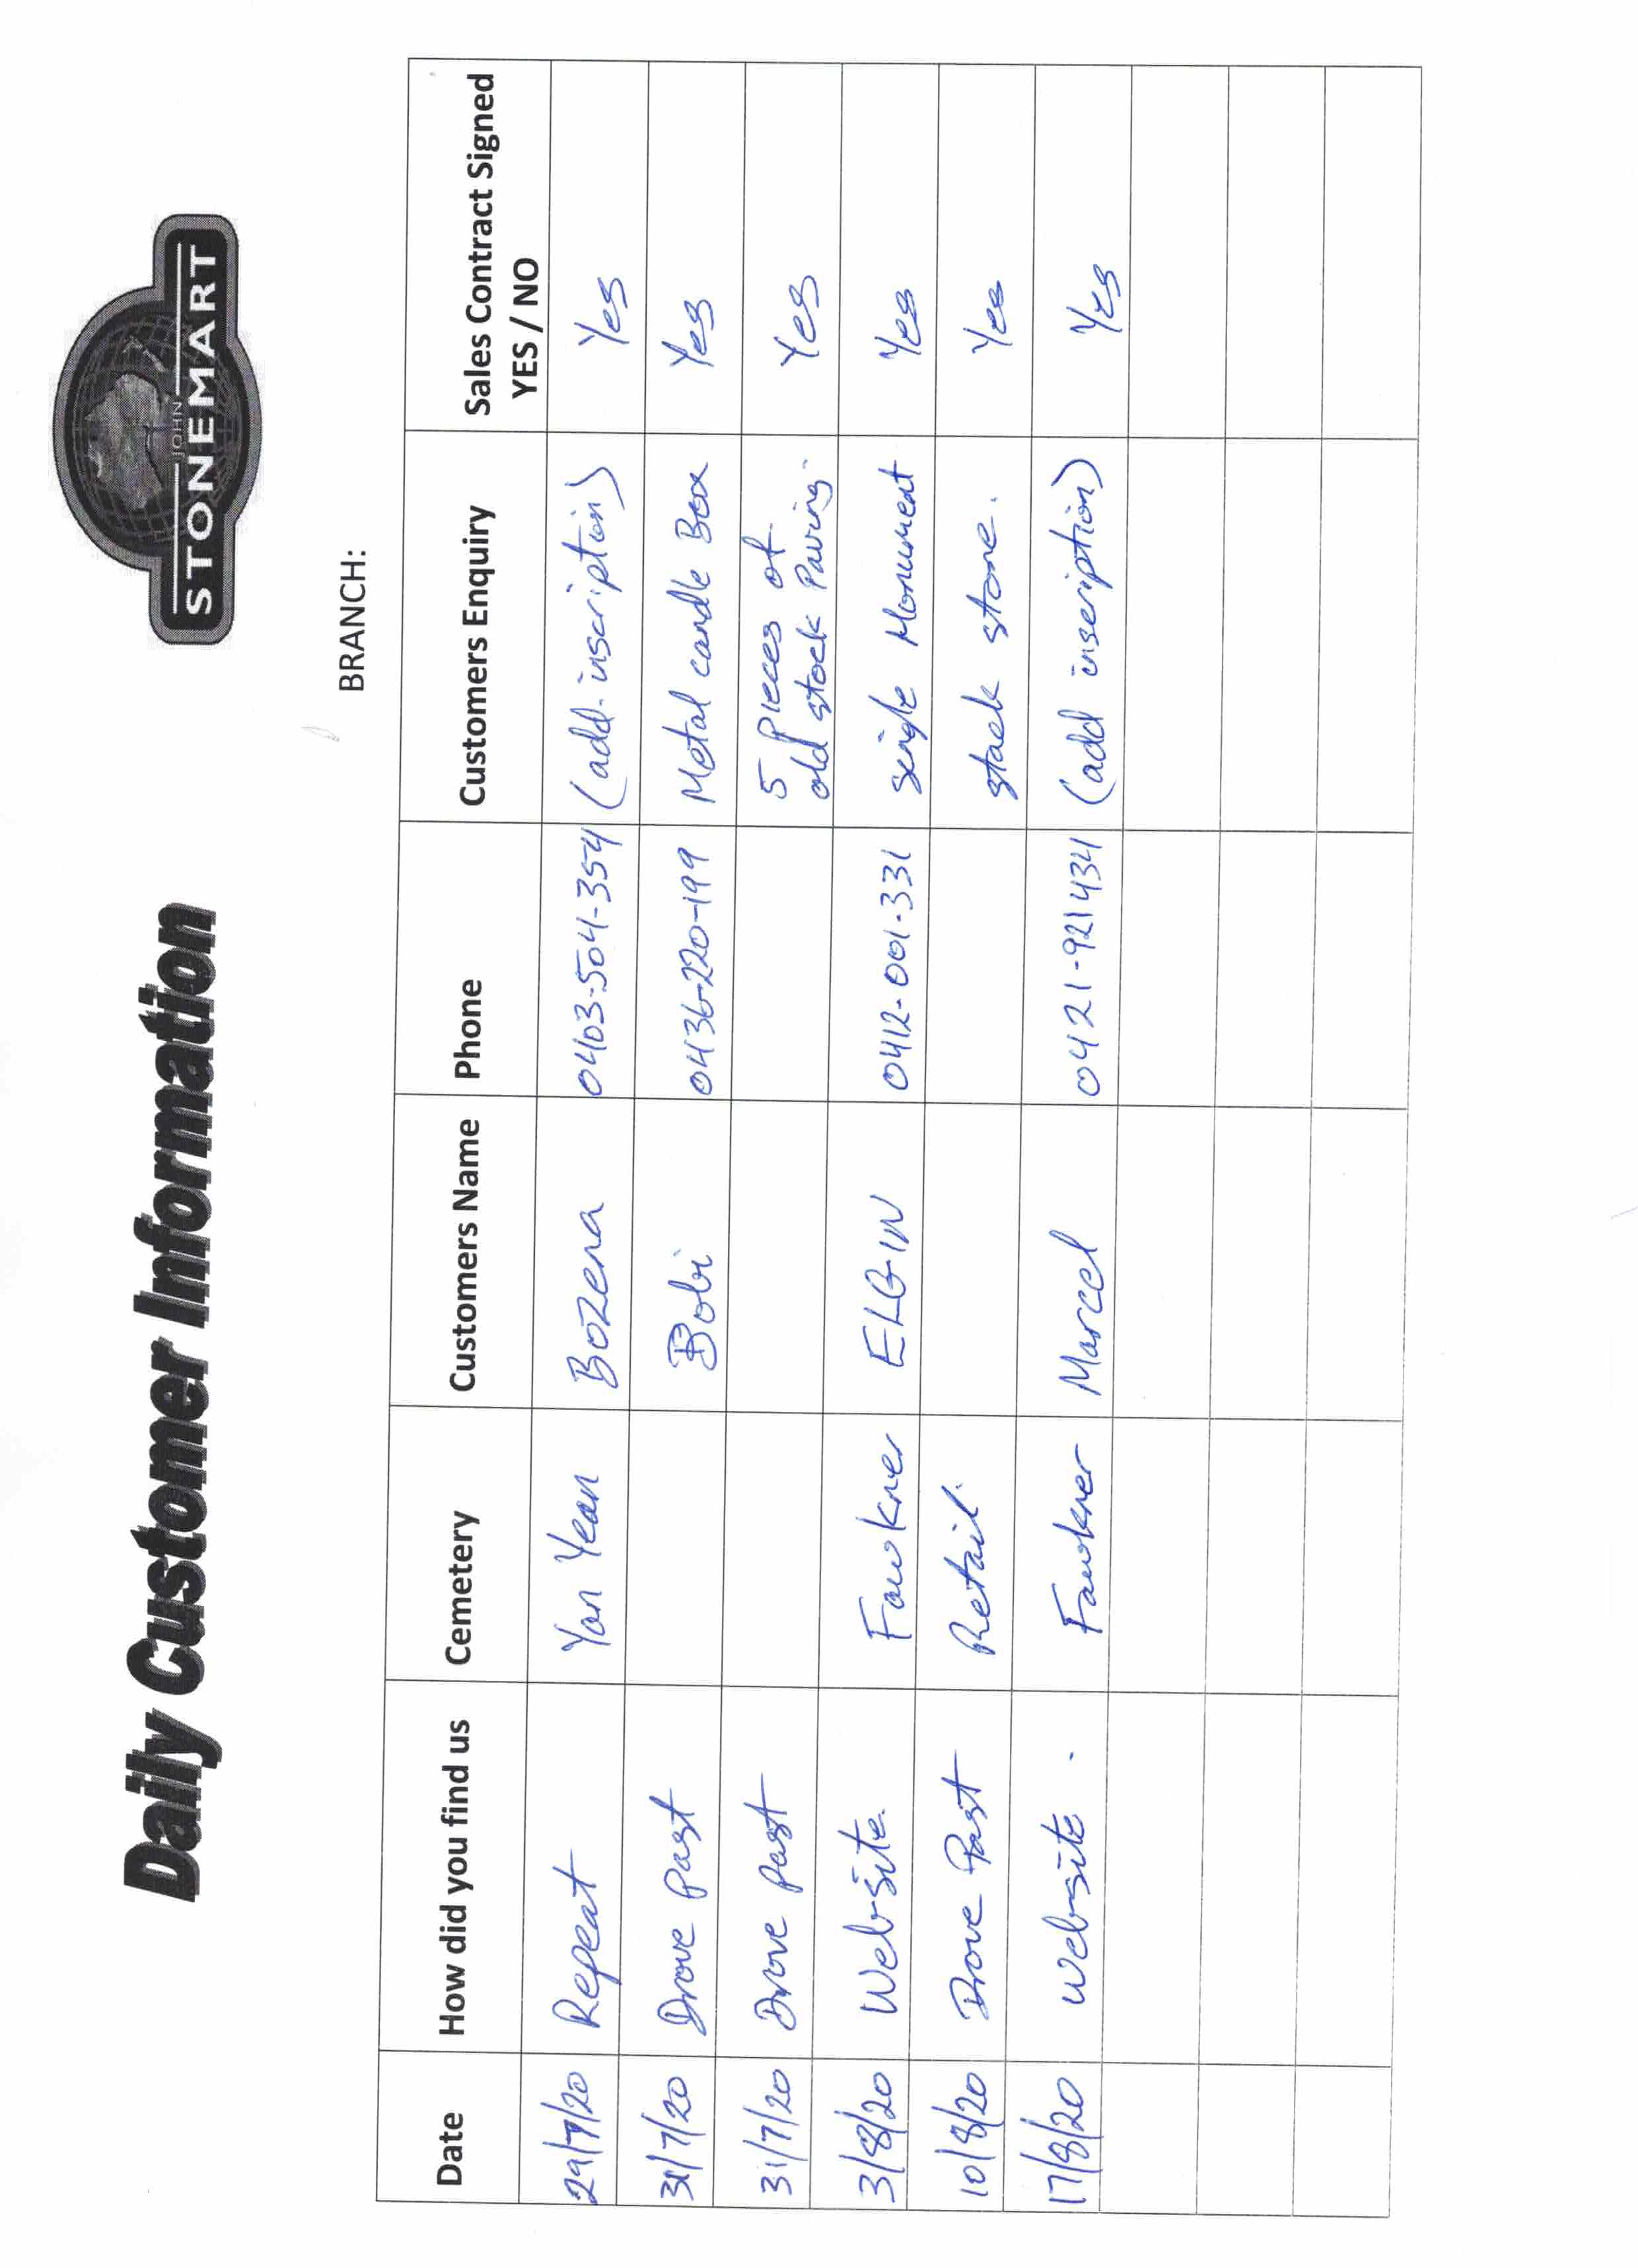 Daily Customer Information
JOHN
STONEMART
BRANCH:
Date How did you find us Cemetery Customers Name Phone Customers Enquiry Sales Contract Signed
YES / NO
29/7/20 Repeat Yan Yean Bozena 0403-504-354 (add-inscription) Yes
31/7/20 Drove Past Bobi 0436-220-199 Metal candle Box Yes
31/7/20 Drove past 5 Pieces of Yes
old stock Paving.
3/8/20 Website. Fawkner ELGIN 0412-001-331 single Monument Yes
10/8/20 Drove Past Retail. stack stone. Yes
17/8/20 website. Fawkner Marcel 0421-921434 (add inscription) Yes